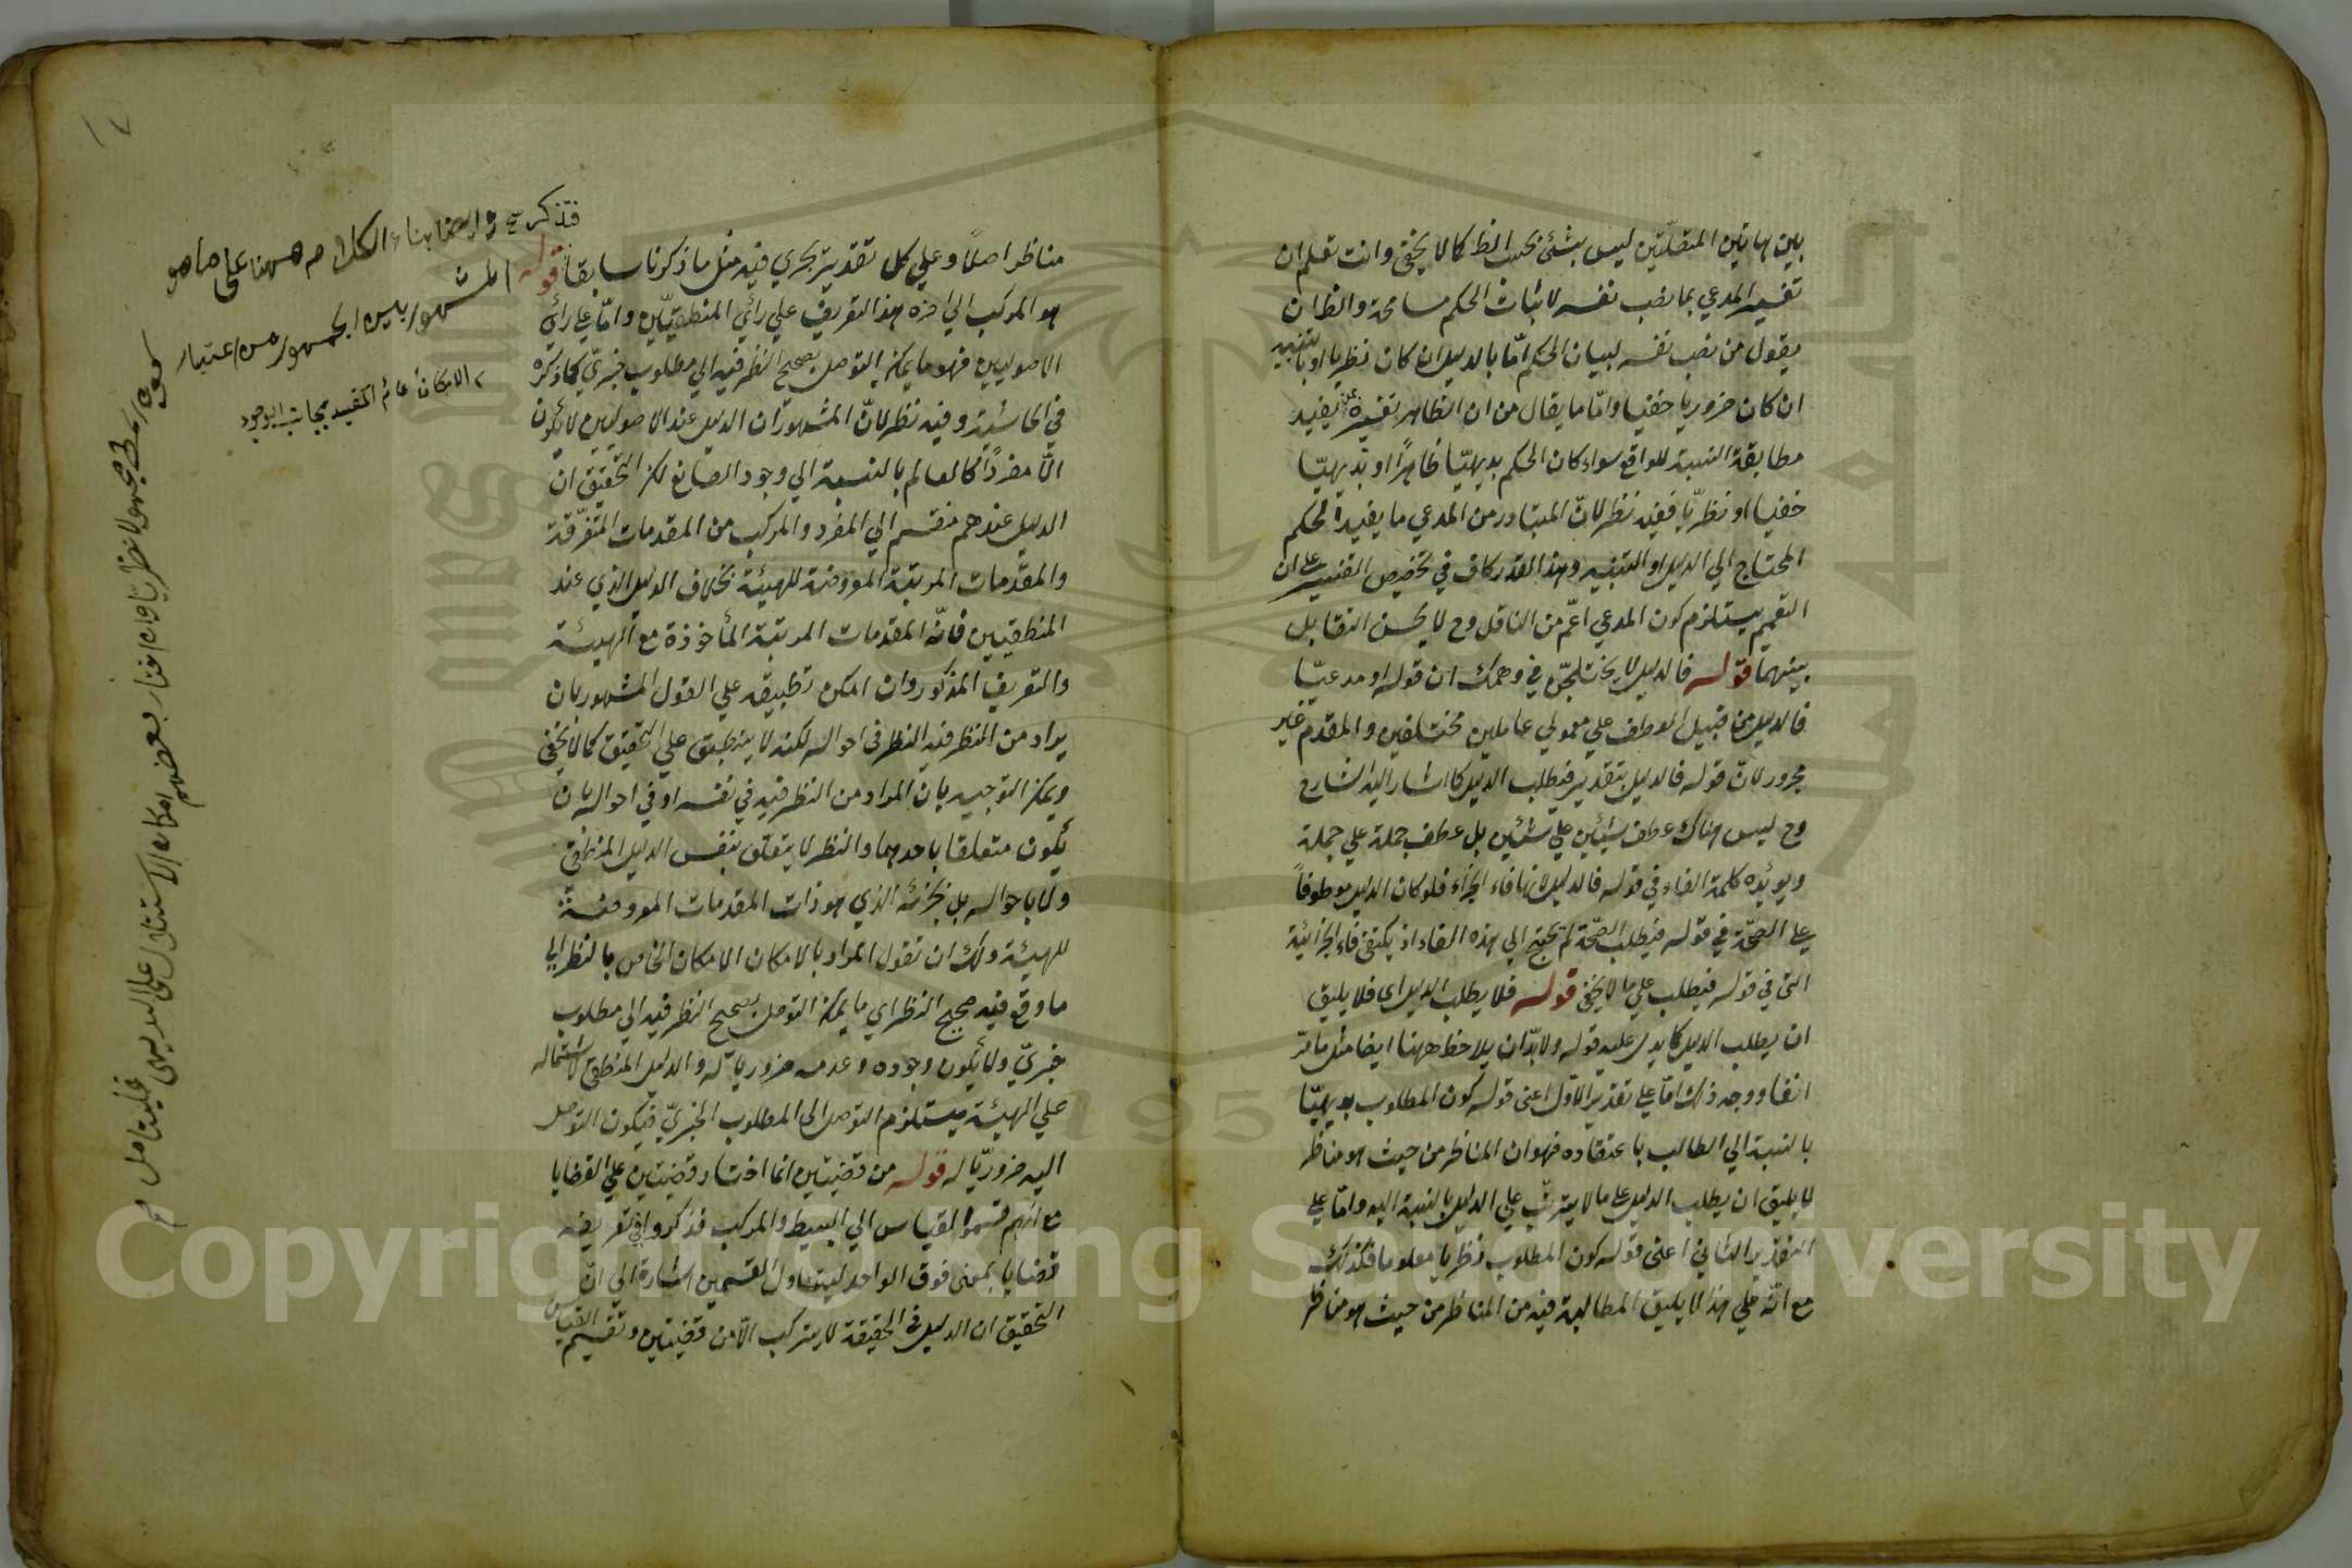 بين هاتين المنقلتين ليس بشئ بحسب الظ كما لا يخفى وانت تعلم ان
تفسير المدعي بما نصب نفسه لاثبات الحكم مسامحة والظ ان
يقول من نصب نفسه لبيان الحكم امّا بالدليل ان كان نظريا او بالتنبيه
ان كان ضروريا خفيا وامّا ما يقال من ان الظاهر تفسيره بمن يفيد
مطابقة النسبة للواقع سواء كان الحكم بديهيّا ظاهرًا او بديهيّا
خفيا او نظريّا ففيه نظر لانّ المتبادر من المدعي ما يفيد الحكم
المحتاج الي الدليل او التنبيه وهذا القدر كاف في تخصيص التفسير علي ان
التعميم يستلزم كون المدعي اعمّ من الناقل وح لا يحسن التقابل
بينهما قوله فالدليل لا يختلجنّ في وهمك ان قوله او مدعيّا
فالدليل من قبيل العطف علي معمولي عاملين مختلفين والمقدم غير
مجرور لانّ قوله فالدليل بتقدير فيطلب الدليل كما اشار اليه الشارح
وح ليس هناك عطف شيئين علي شيئين بل عطف جملة علي جملة
ويؤيده كلمة الفاء في قوله فالدليل لانها فاء الجزاء فلو كان الدليل معطوفاً
علي الصحّة في قوله فيطلب الصحّة لم يحتج الي هذه الفاء اذ يكتفى فاء الجزائية
التي في قوله فيطلب علي ما لا يخفى قوله فلا يطلب الدليل اى فلا يليق
ان يطلب الدليل كما يدل عليه قوله ولا بدّ ان يلاحظ ههنا ايضا مثل ما مرّ
انفا ووجه ذلك امّا علي تقدير الاوّل اعنى قوله كون المطلوب بديهيّا
بالنسبة الي الطالب باعتقاده فهو ان المناظر من حيث هو مناظر
لا يليق ان يطلب الدليل علي ما لا يترتّب علي الدليل بالنسبة اليه وامّا علي
التقدير الثاني اعنى قوله كون المطلوب نظريا معلوما فكذلك
مع انّه علي هذا لا يليق المطالبة فيه من المناظر من حيث هو مناظر
مناظر اصلاً وعلي كل تقدير يجري فيه مثل ما ذكرنا سابقاً قوله
هو المركب الي اخره هذا التعريف علي رأي المنطقيّين وامّا علي رأي
الاصوليين فهو ما يمكن التوصل بصحيح النظر فيه الي مطلوب خبريّ كما ذكره
في الحاشية وفيه نظر لانّ المشهور ان الدليل عند الاصوليين لا يكون
الّا مفردًا كالعالم بالنسبة الي وجود الصانع لكن التحقيق ان
الدليل عندهم منقسم الي المفرد والمركب من المقدمات المتفرّقة
والمقدّمات المرتبة المعروضة للهيئة بخلاف الدليل الذي عند
المنطقيين فانّه المقدمات المرتبة المأخوذة مع الهيئة
والتعريف المذكور وان امكن تطبيقه علي القول المشهور بان
يراد من النظر فيه النظر في احواله لكنه لا ينطبق علي التحقيق كما لا يخفى
ويمكن التوجيه بان المراد من النظر فيه في نفسه او في احواله بان
يكون متعلقا باحدهما والنظر لا يتعلق بنفس الدليل المنطقي
ولا باحواله بل بجزئه الذي هو ذات المقدمات المعروضة
للهيئة ولك ان تقول المراد بالامكان الامكان الخاص بالنظر الي
ما وقع فيه صحيح النظر اي ما يمكن التوصل بصحيح النظر فيه الي مطلوب
خبريّ ولا يكون وجوده وعدمه ضروريا له والدليل المنطقي لاشتماله
علي الهيئة يستلزم التوصل الى المطلوب الخبريّ فيكون التوصل
اليه ضروريّا له قوله من قضيتين انما اختار قضيتين علي القضايا
مع انهم قسموا القياس الي البسيط والمركب فذكروا في تعريفه
قضايا بمعنى فوق الواحد ليتناول القسمين اشارة الي انّ
التحقيق ان الدليل في الحقيقة لا يتركب الّا من قضيتين وتقسيم القياس
فتذكر وايضا بناء الكلام ههنا على ما هو
المشهور بين الجمهور من اعتبار
الامكان العام المقيد بجانب الوجود
مجهولا نظريا وان اختار بعضهم امكان الاستدلال على البديهي
فليتأمل